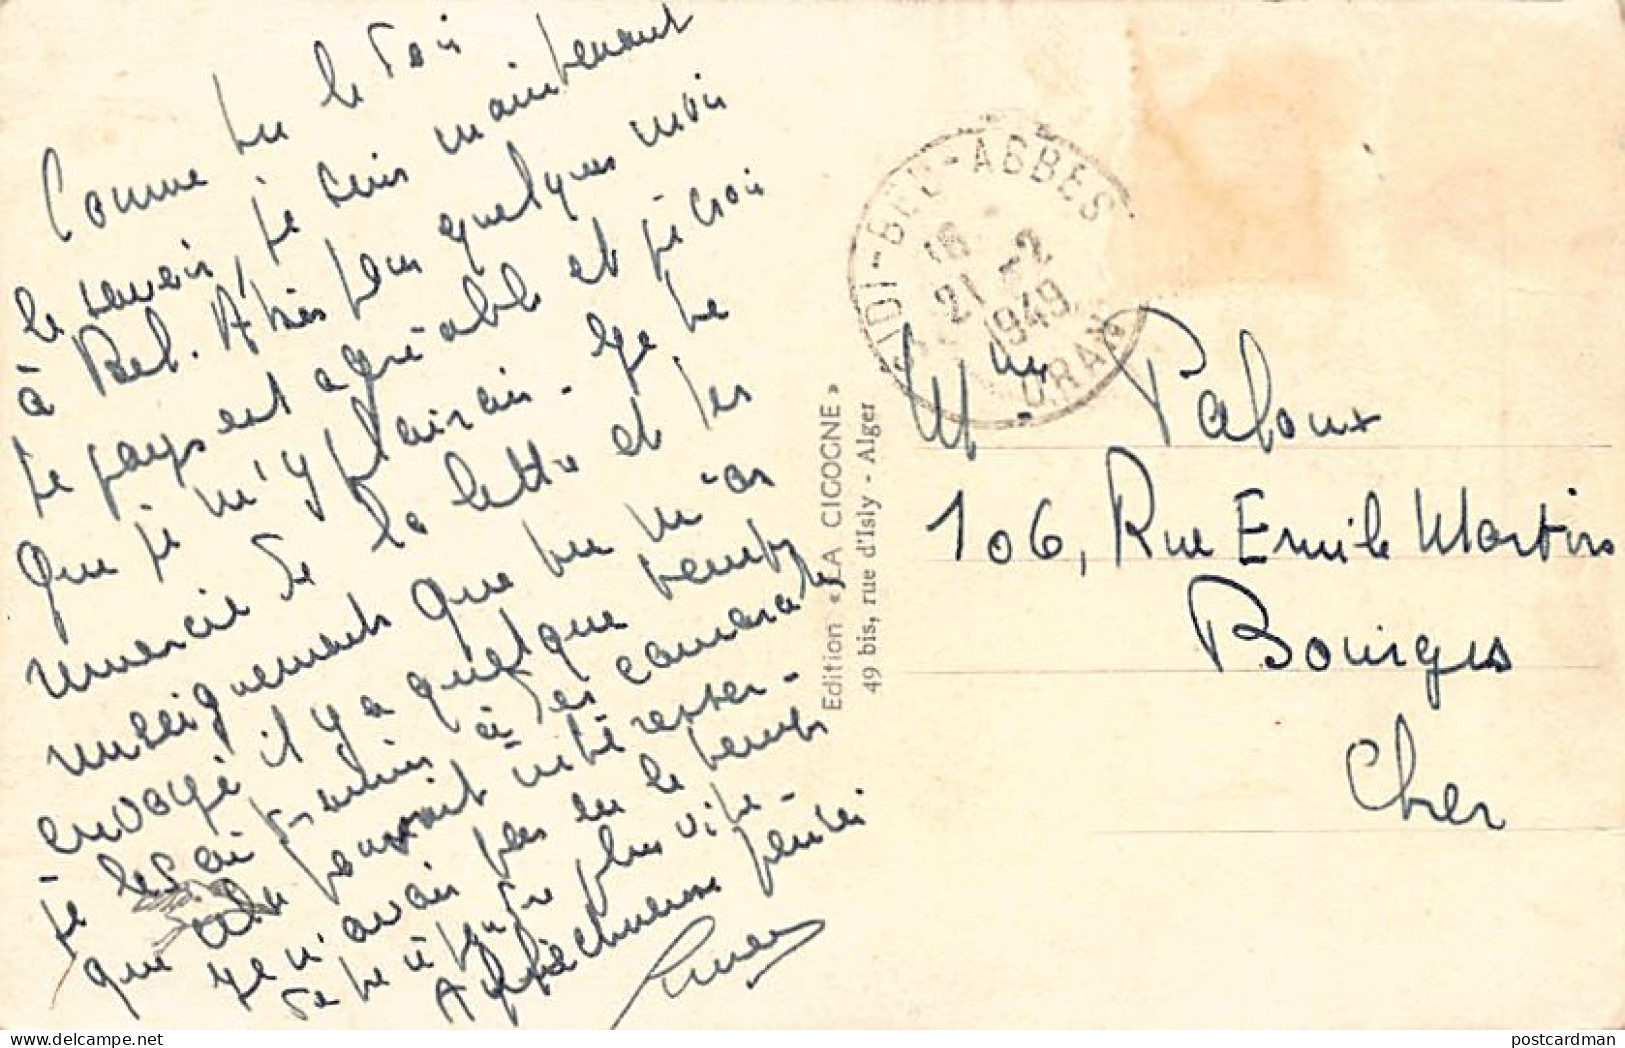 Comme tu le dois
le savoir, je suis maintenant
à Bel. Abbès pour quelques mois
Le pays est agréable et je crois
que je m'y plairai. Je te
remercie de la lettre et des
renseignements que tu m'as
envoyé il y a quelque temps
je les ai transmis à des camarades
que cela pouvait intéresser.
Je n'avais pas eu le temps
de te répondre plus vite.
Affectueuses pensées
SIDI-BEL-ABBES
ORAN
18
21 -2
1949
Edition « LA CIGOGNE »
49 bis, rue d'Isly - Alger
Paloux
106, Rue Emile Martin
Bourges
Cher
postcardman